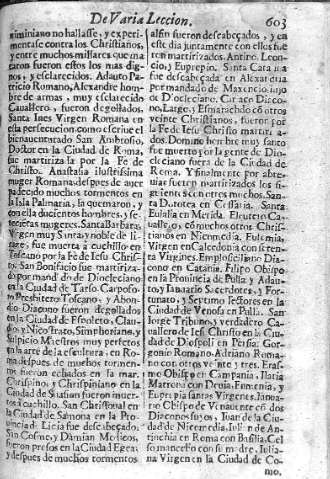 De Varia Leccion. 603
ximiniano no hallasse, y experi-
mentasse contra los Christianos,
y entre muchos millares que ma-
taron fueron estos los mas dig-
nos, y esclarecidos. Adauto Pa-
tricio Romano, Alexandre hom-
bre de armas, muy esclarecido
Cavallero, fueron degollados.
Santa Ines Virgen Romana en
esta persecucion como escrive el
bienaventurado San Ambrosio,
Doctor en la Ciudad de Roma,
fue martirizada por la Fe de
Christo. Anastasia ilustrissima
muger Romana despues de aver
padecido muchos tormentos en
la Isla Palmaria, la quemaron, y
con ella ducientos hombres, y se-
tecientas mugeres. Santa Barbara,
Virgen muy santa y noble de li-
nage, fue muerta à cuchillo en
Toscano por la Fè de Iesu Christ-
San Bonifacio fue martiriza-
do por mandado de Diocleciano
en la Ciudad de Tarso. Carposo-
ro Presbitero Toscano, y Abon-
dio Diacono fueron degollados
en la Ciudad de Claudio,
y Nicostrato, Simphoriano, y
Sulpicio Maestros muy perfetos
en la arte de la escultura, en Ro-
ma despues de muchos tormen-
tos fueron echados en la mar.
Chrispino, y Chrispiniano en la
Ciudad de fueron muer-
tos à cuchillo. San Christoval en
la Ciudad de Samona en la Pro-
vincia de Licia fue descabeçado.
San Cosme, y Damian Medicos,
fueron presos en la Ciudad Egea,
y despues de muchos tormentos
al fin fueron descabeçados, y en
este dia juntamente con ellos fue-
ron martirizados. Antiro, Leon-
cio, y Euprepio. Santa Catalina
fue descabeçada en Alexandria
por mandado de Maxencio hijo
de Diocleciano. Ciriaco Diaco-
no, Largo, y Esmaragdo cō otros
veinte Christianos, fueron por
la Fè de Iesu Christo martiriza-
dos. Domno hombre muy santo
fue muerto por la gente de Dio-
cleciano fuera de la Ciudad de
Roma. Y finalmente por abre-
fueron martirizados los si-
guientes entre muchos. San-
ta Dorotea en Cesaria. Santa
Eulalia en Merida. Eleuterio Ca-
vallero, cō muchos otros Chris-
tianos en Nicomedia. Eufemia,
Virgen en Calcedonia con seten-
ta Virgines. Diaco-
no en Catania. Filipo Obispo
en la Provincia de Pulla, y Adau-
to, y Ianuario Sacerdotes, y For-
tunato, y Septimo Lectores en la
Ciudad de Venosa en Pulla. San
Jorge Tribuno, y verdadero Ca-
vallero de Iesu Christo en la Ciu-
dad de Diospoli en Persia. Gor-
gonio Romano, Adriano Roma-
no con otros veinte y tres. Eras-
mo Obispo en Campania. Ilaria
Matrona con Eumenia, y
Euprepia santas Virgines. Ianua-
rio Obispo de Venavente cō dos
Diaconos suyos, Iuan de la Ciudad
de Nicomedia. Iulian de An-
tiochia en Roma con Basilia. Cel-
so mancebo con su madre. Iulia-
na Virgen en la Ciudad de Co-
mo.